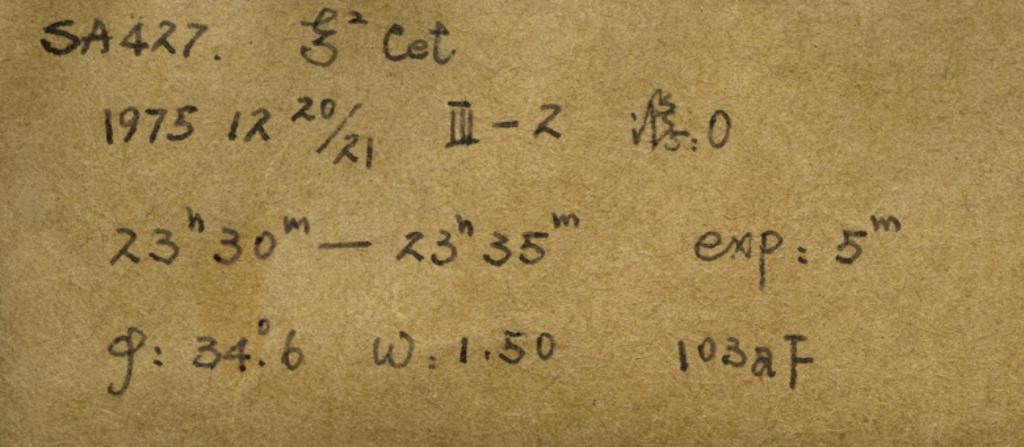 SA427. ξ² Cet
1975 12 20/21 III-2 :0
23ʰ30ᵐ — 23ʰ35ᵐ exp: 5ᵐ
φ: 34°.6 ω: 1.50 103aF